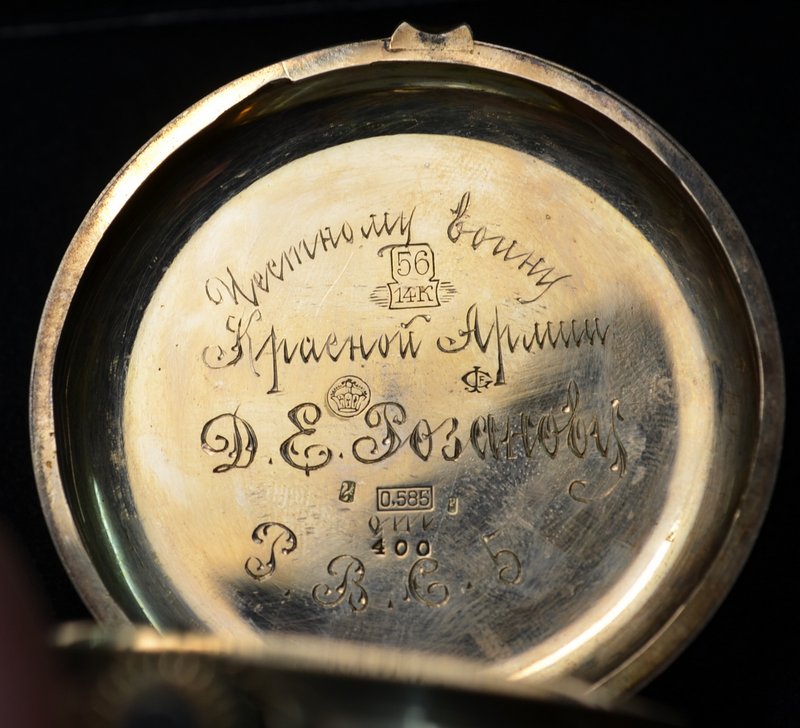 Честному воину
56
14K
Красной Армии
Д. Е. Розанову
0,585
400
Р. В. С. 5